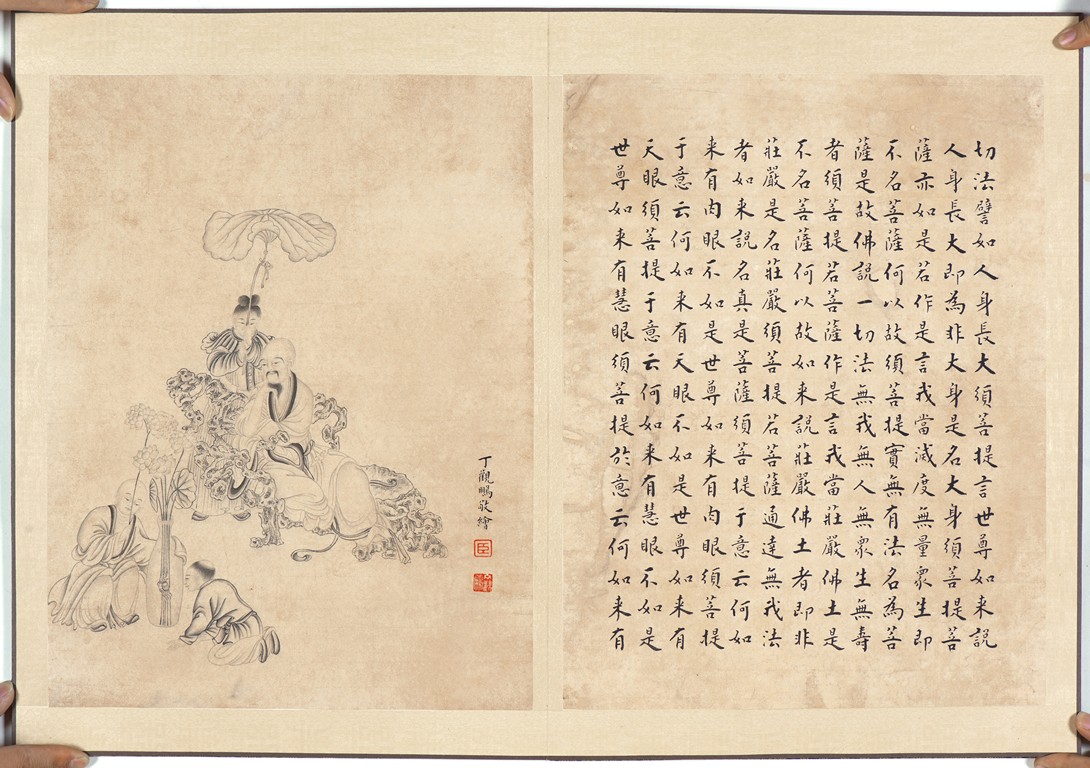 切法譬如人身長大須菩提言世尊如来說
人身長大即為非大身是名大身須菩提菩
薩亦如是若作是言我當滅度無量眾生即
不名菩薩何以故須菩提實無有法名為菩
薩是故佛說一切法無我無人無眾生無壽
者須菩提若菩薩作是言我當莊嚴佛土是
不名菩薩何以故如来說莊嚴佛土者即非
莊嚴是名莊嚴須菩提若菩薩通達無我法
者如来說名真是菩薩須菩提于意云何如
来有肉眼不如是世尊如来有肉眼須菩提
于意云何如来有天眼不如是世尊如来有
天眼須菩提于意云何如来有慧眼不如是
世尊如来有慧眼須菩提於意云何如来有
丁觀鵬敬繪
臣